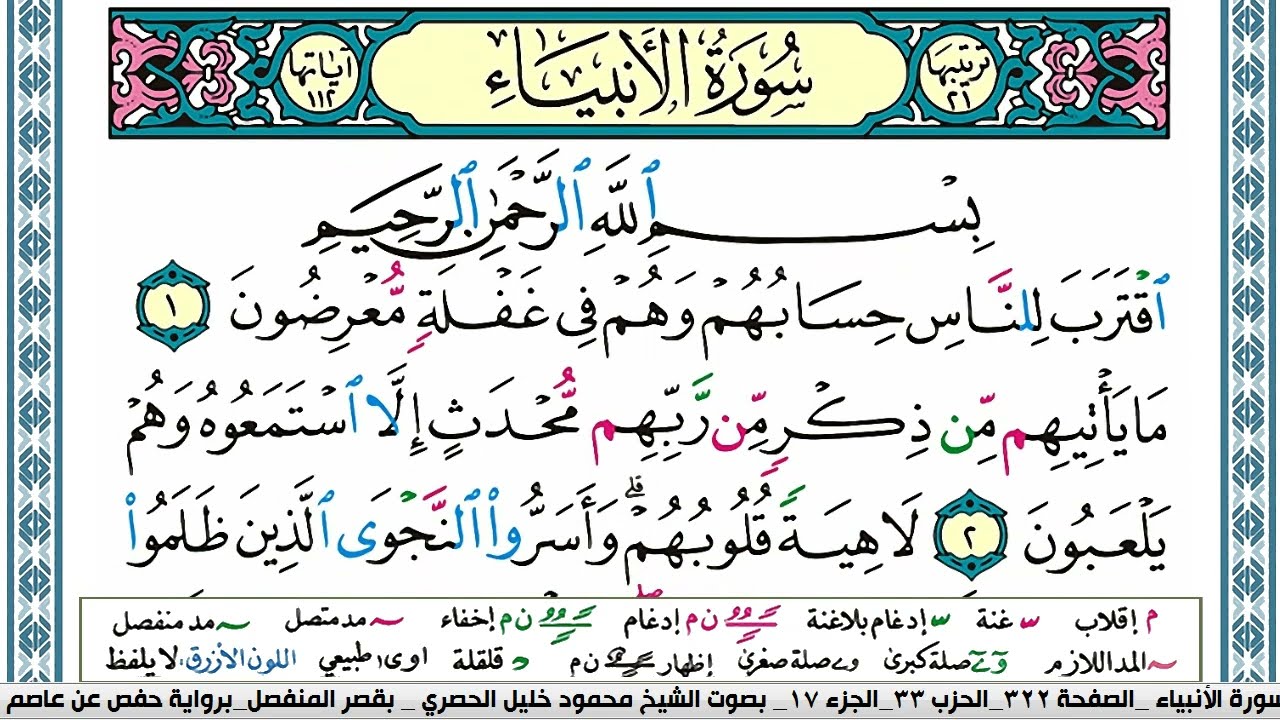 ترتيبها ٢١
سُورَةُ الأَنبِيَاءِ
آياتها ١١٢
بِسْمِ ٱللَّهِ ٱلرَّحْمَٰنِ ٱلرَّحِيمِ
ٱقْتَرَبَ لِلنَّاسِ حِسَابُهُمْ وَهُمْ فِى غَفْلَةٍ مُّعْرِضُونَ ١
مَا يَأْتِيهِم مِّن ذِكْرٍ مِّن رَّبِّهِم مُّحْدَثٍ إِلَّا ٱسْتَمَعُوهُ وَهُمْ
يَلْعَبُونَ ٢ لَاهِيَةً قُلُوبُهُمْ ۗ وَأَسَرُّوا۟ ٱلنَّجْوَى ٱلَّذِينَ ظَلَمُوا۟
م إقلاب غنة إدغام بلاغنة ن م إدغام ن م إخفاء مد متصل مد منفصل
المد اللازم صلة كبرى صلة صغرى إظهار ن م قلقلة اوى طبيعي اللون الأزرق. لا يلفظ
سورة الأنبياء _الصفحة ٣٢٢_الحزب ٣٣_الجزء ١٧_ بصوت الشيخ محمود خليل الحصري _ بقصر المنفصل_برواية حفص عن عاصم